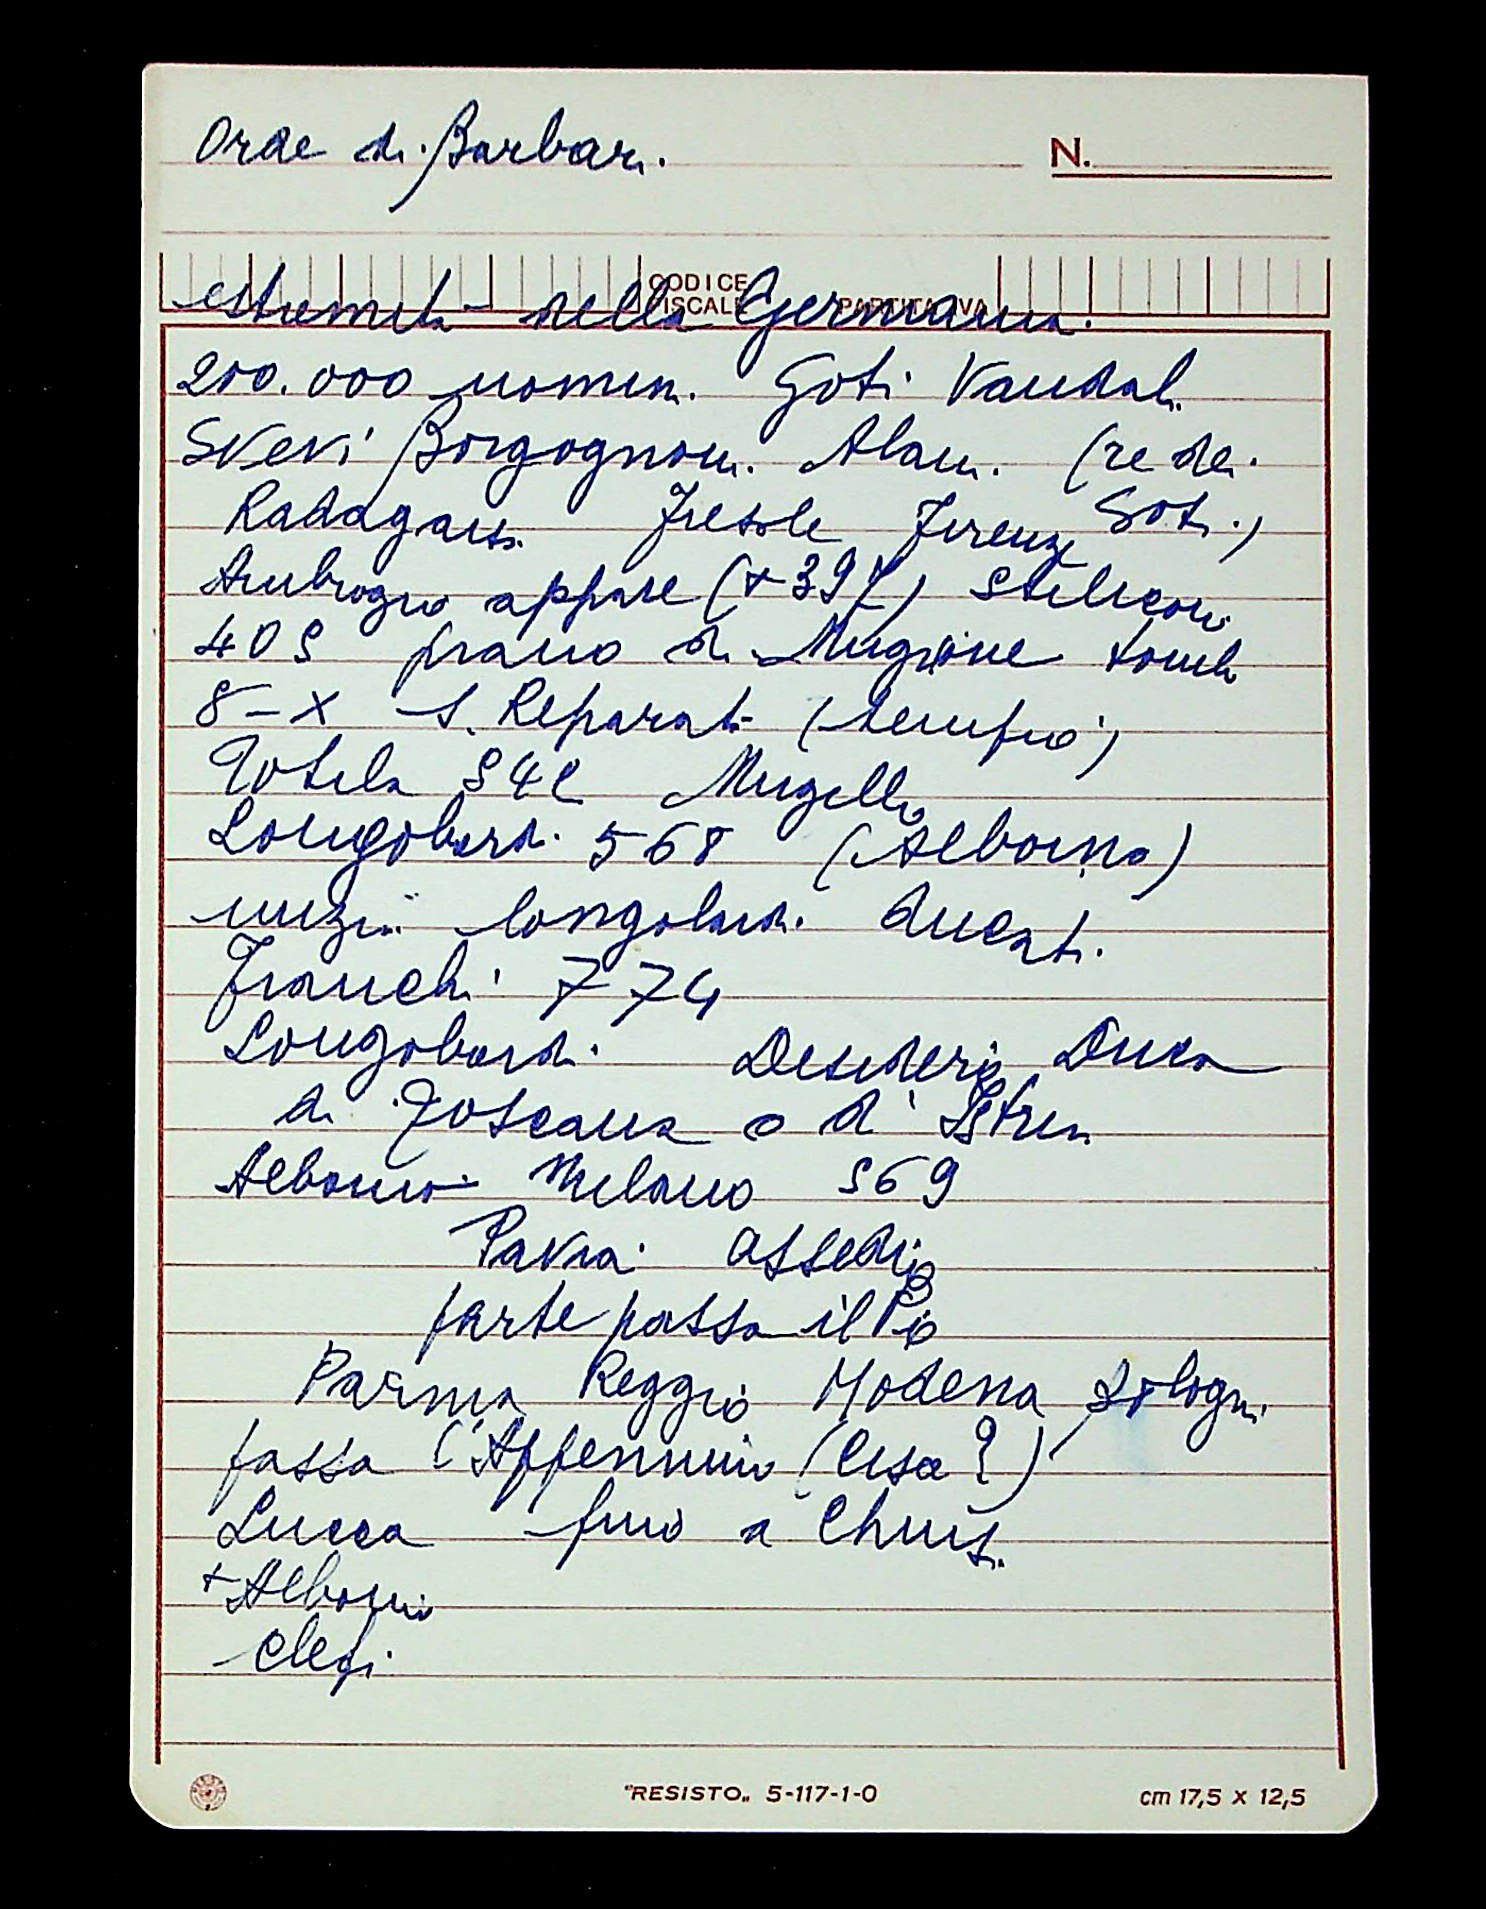 Orde di Barbari
N.
CODICE
FISCALE PARTITA IVA
estremità della Germania.
200.000 uomini. Goti Vandali
Svevi Borgognoni Alani (re dei
Radagaiso Fiesole Firenze Goti)
Ambrogio appare (+397) Stilicone
405 piano di Mugnone tomb
8-X S. Reparata (tempio)
Totila 542 Mugello
Longobardi 568 (Alboino)
longobardi ducati.
Franchi 774
Longobardi Desiderio Duca
di Toscana o d'Istria
Alboino Milano 569
Pavia assedio
parte passa il Po
Parma Reggio Modena Bologna
passa l'Appennino (Cisa?)
Lucca fino a Chiusi.
+ Alboino
Clefi
"RESISTO„ 5-117-1-0
cm 17,5 x 12,5